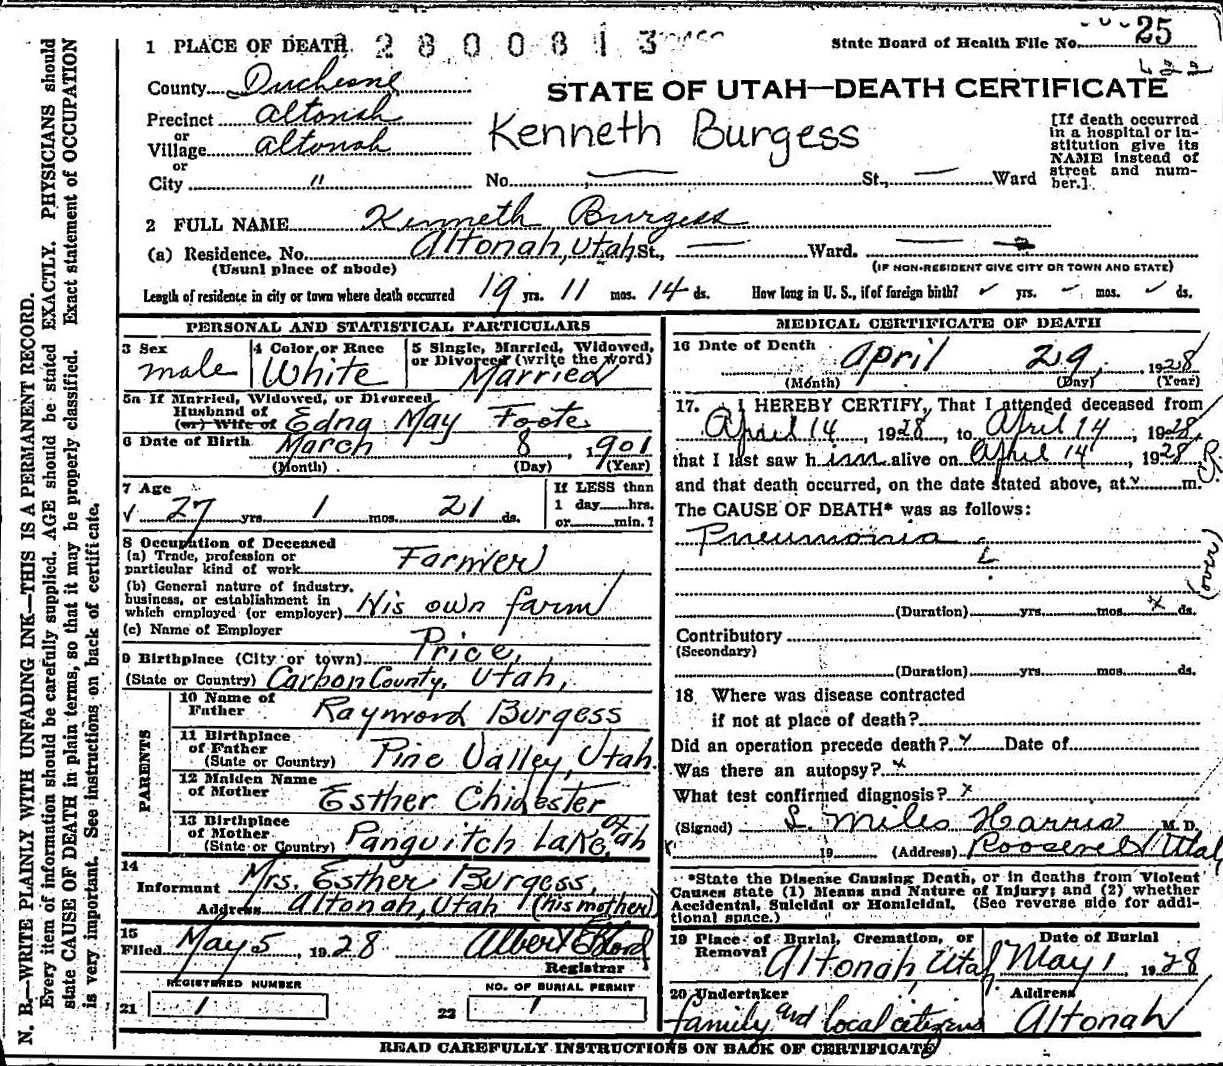 1 PLACE OF DEATH 2800813
State Board of Health File No. 25
County Duchesne
STATE OF UTAH—DEATH CERTIFICATE
Precinct Altonah
or
Village Altonah
or
City "
Kenneth Burgess
No. — St., — Ward
[If death occurred
in a hospital or in-
stitution give its
NAME instead of
street and num-
ber.]
2 FULL NAME Kenneth Burgess
(a) Residence. No. Altonah, Utah St., — Ward. —
(Usual place of abode)
(IF NON-RESIDENT GIVE CITY OR TOWN AND STATE)
Length of residence in city or town where death occurred 19 yrs. 11 mos. 14 ds. How long in U. S., if of foreign birth? yrs. mos. ds.
PERSONAL AND STATISTICAL PARTICULARS
3 Sex
male
4 Color or Race
White
5 Single, Married, Widowed,
or Divorced (write the word)
Married
5a If Married, Widowed, or Divorced
Husband of
(or) Wife of Edna May Foote
6 Date of Birth March 8, 1901
(Month) (Day) (Year)
7 Age
27 yrs 1 mos. 21 ds.
If LESS than
1 day hrs.
or min.?
8 Occupation of Deceased
(a) Trade, profession or
particular kind of work Farmer
(b) General nature of industry,
business, or establishment in
which employed (or employer) His own farm
(c) Name of Employer
9 Birthplace (City or town) Price,
(State or Country) Carbon County, Utah,
PARENTS
10 Name of
Father Raymond Burgess
11 Birthplace
of Father
(State or Country) Pine Valley, Utah.
12 Maiden Name
of Mother Esther Chidester
13 Birthplace
of Mother
(State or Country) Panguitch Lake, Utah
14
Informant Mrs. Esther Burgess,
Address Altonah, Utah (his mother)
15
Filed May 5, 1928
Registrar
REGISTERED NUMBER
21 1
NO. OF BURIAL PERMIT
22 1
MEDICAL CERTIFICATE OF DEATH
16 Date of Death April 29, 1928
(Month) (Day) (Year)
17. I HEREBY CERTIFY, That I attended deceased from
April 14, 1928, to April 14, 1928,
that I last saw him alive on April 14, 1928
and that death occurred, on the date stated above, at m.
The CAUSE OF DEATH* was as follows:
Pneumonia
(over)
(Duration) yrs. mos. ds.
Contributory
(Secondary)
(Duration) yrs. mos. ds.
18 Where was disease contracted
if not at place of death?
Did an operation precede death? Date of
Was there an autopsy?
What test confirmed diagnosis?
(Signed) L. Miles Harris M. D.
19 (Address) Roosevelt Utah
*State the Disease Causing Death, or in deaths from Violent
Causes state (1) Means and Nature of Injury; and (2) whether
Accidental, Suicidal or Homicidal. (See reverse side for addi-
tional space.)
19 Place of Burial, Cremation, or
Removal Altonah, Utah
Date of Burial
May 1, 1928
20 Undertaker
family and local citizens
Address
Altonah
READ CAREFULLY INSTRUCTIONS ON BACK OF CERTIFICATE
N. B.—WRITE PLAINLY WITH UNFADING INK—THIS IS A PERMANENT RECORD.
Every item of information should be carefully supplied. AGE should be stated EXACTLY. PHYSICIANS should
state CAUSE OF DEATH in plain terms, so that it may be properly classified. Exact statement of OCCUPATION
is very important. See instructions on back of certificate.